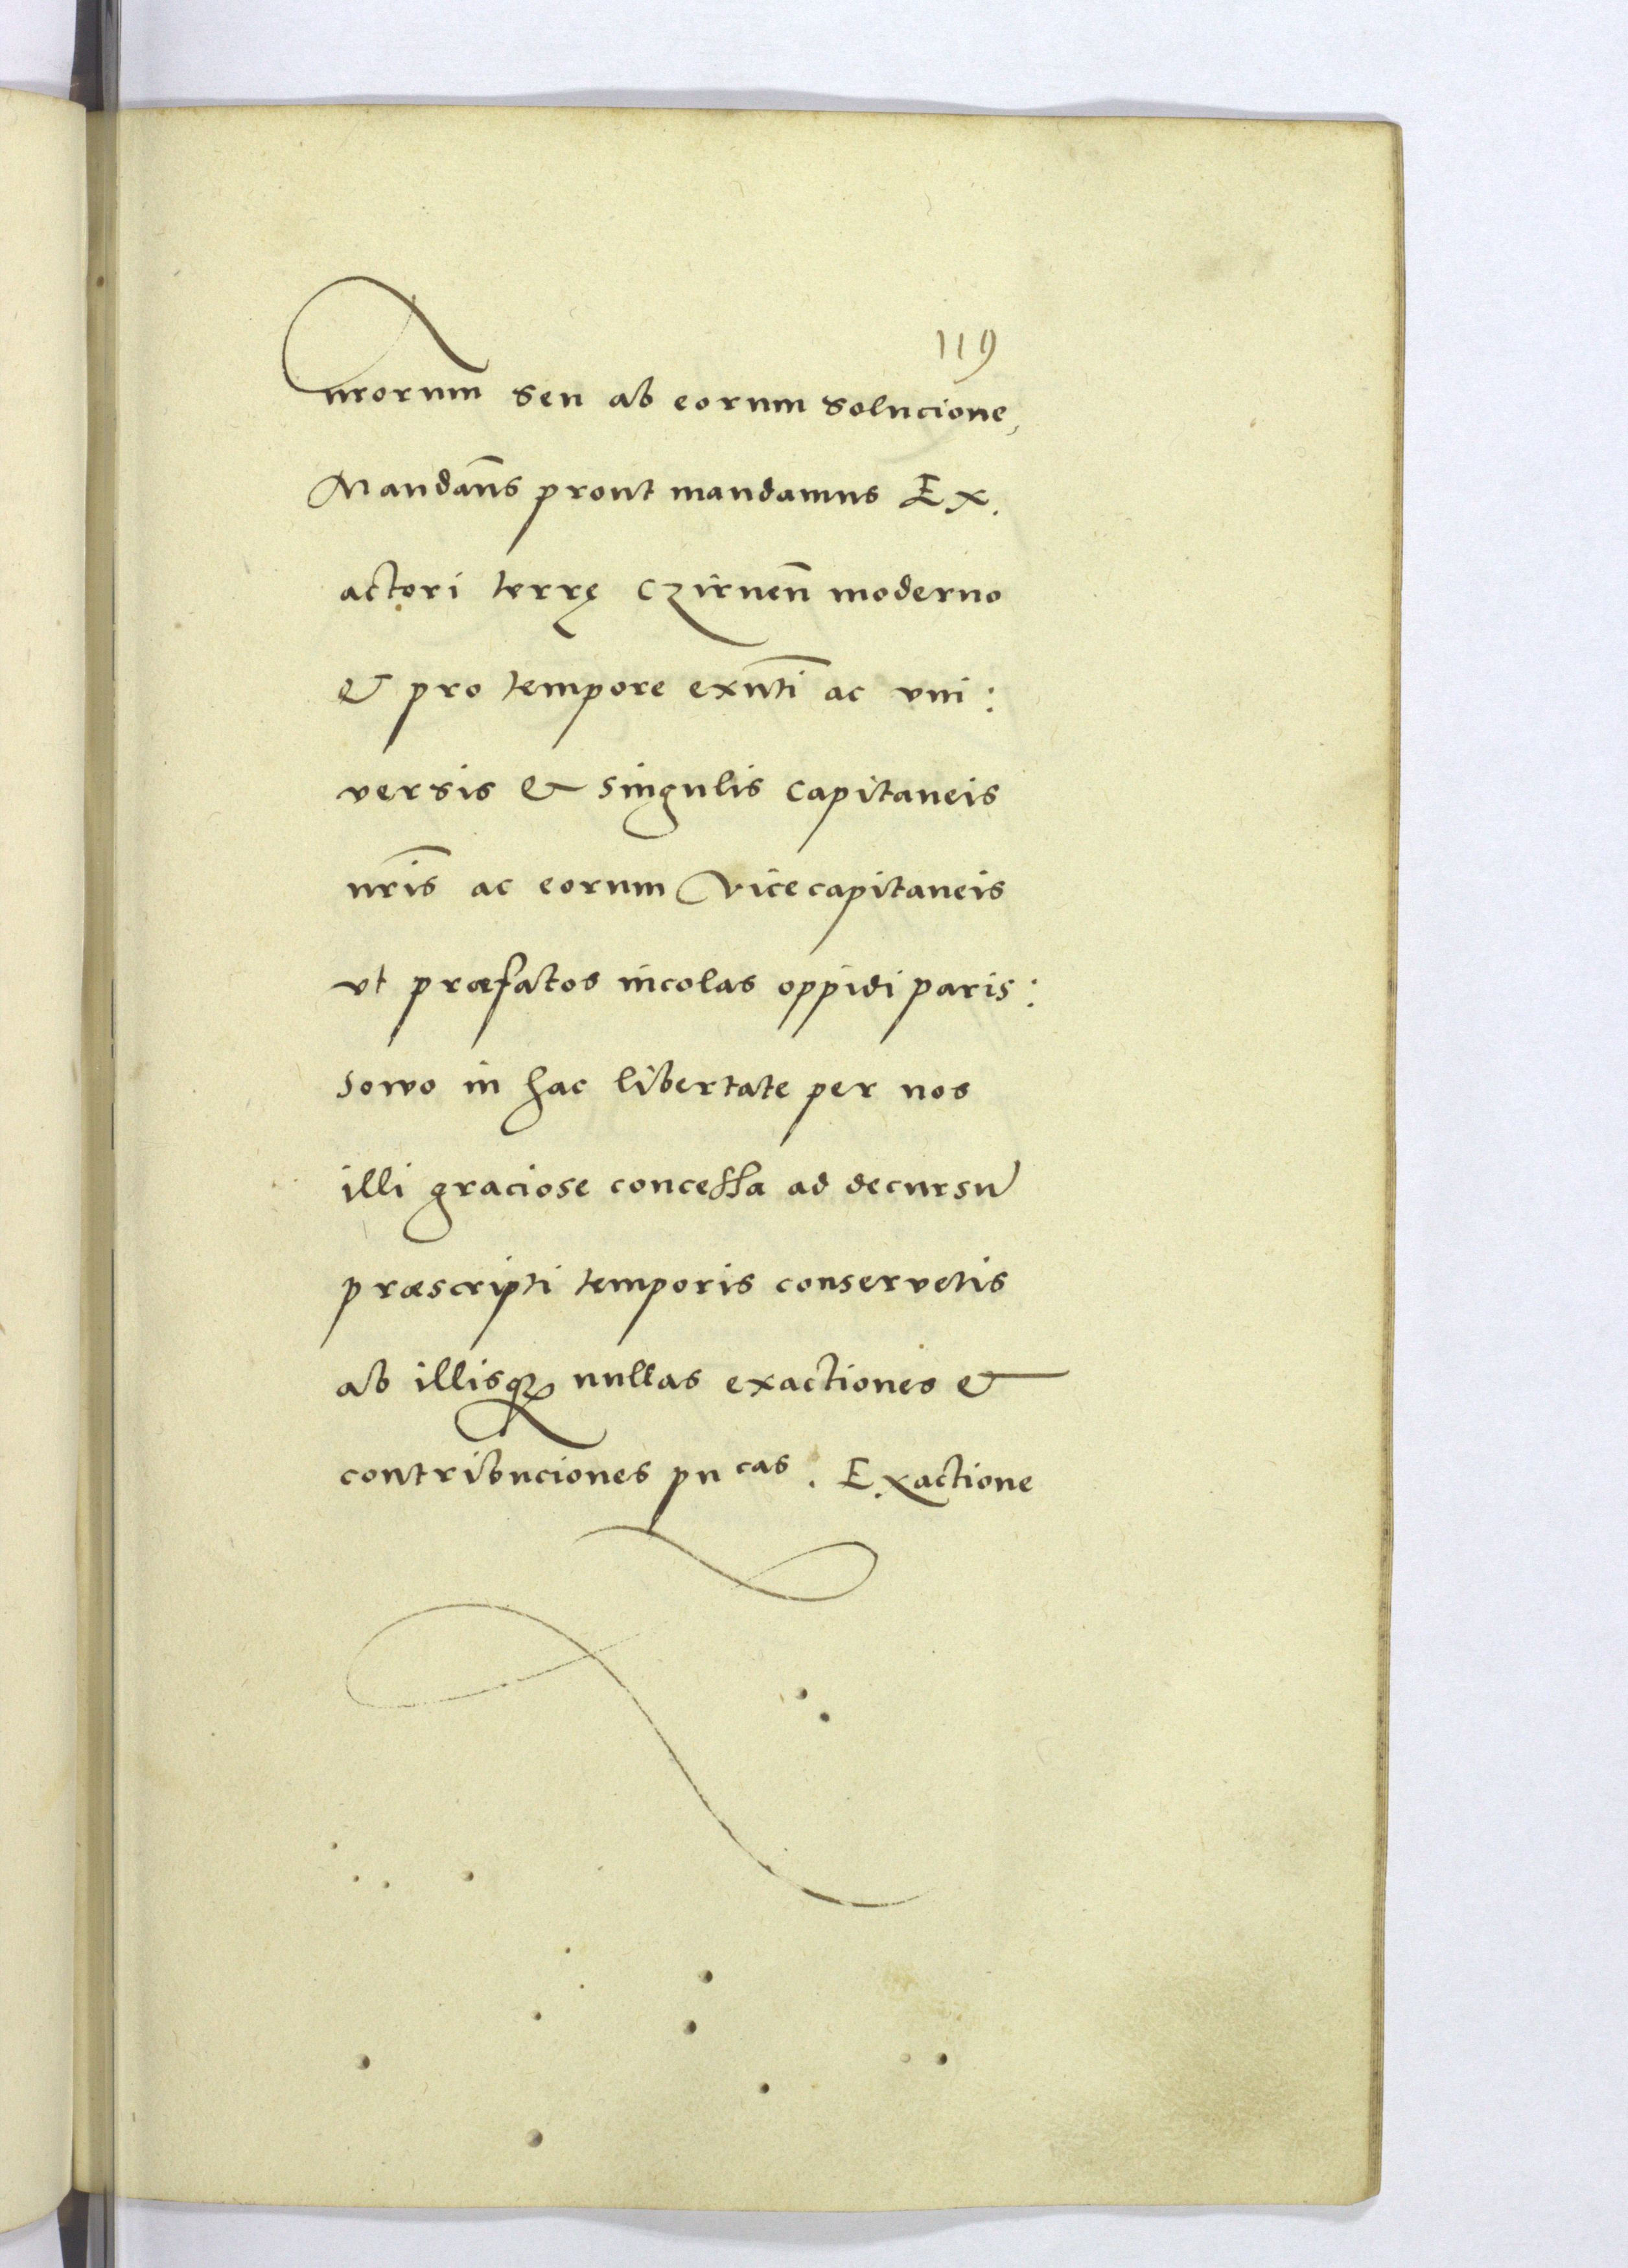 119
nrorum seu ab eorum solucione,
Mandan̄s prout mandamus Ex.
actori terrę Czirnen̄ moderno
& pro tempore exn̄ti ac vni:
versis & singulis capitaneis
nr̄is ac eorum vicecapitaneis
vt præfatos incolas oppidi paris:
sowo in hac libertate per nos
illi graciose concessa ad decursū
præscripti temporis conservetis
ab illisqꝫ nullas exactiones &
contribuciones pncas. Exactione